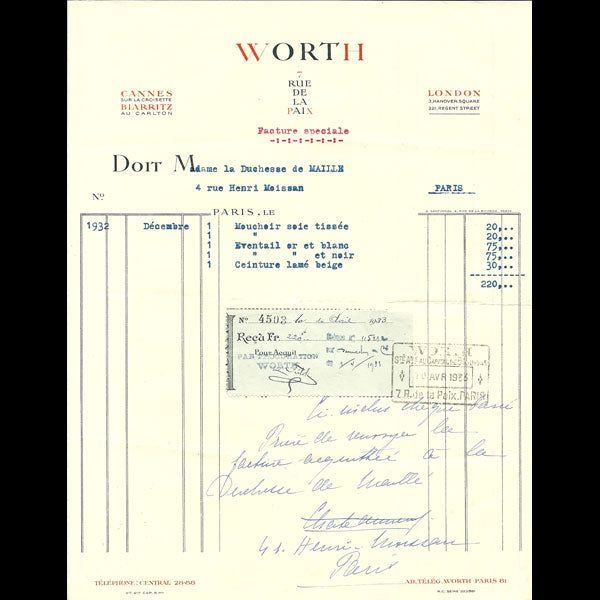 WORTH
7
RUE
DE
LA
PAIX
CANNES
SUR LA CROISETTE
BIARRITZ
AU CARLTON
LONDON
3, HANOVER SQUARE
221, REGENT STREET
Facture speciale
-:-:-:-:-:-:-
DOIT Madame la Duchesse de MAILLE
4 rue Henri Moissan PARIS
No
PARIS, LE
1932 Décembre 1 Mouchoir soie tissée 20,..
1 " 20,..
1 Eventail or et blanc 75,..
1 " " et noir 75,..
1 Ceinture lamé beige 30,..
220,..
No 4593 1933
Reçu Fr. 220
Pour Acquit
PAR PROCURATION
WORTH
WORTH
AVR 1933
7. R. de la Paix. PARIS
Ci inclus chèque
Prière de renvoyer la
facture acquittée à la
Duchesse de Maillé
4 r. Henri-Moissan
Paris
TÉLÉPHONE: CENTRAL 28-68
AD. TÉLÉG. WORTH PARIS 81